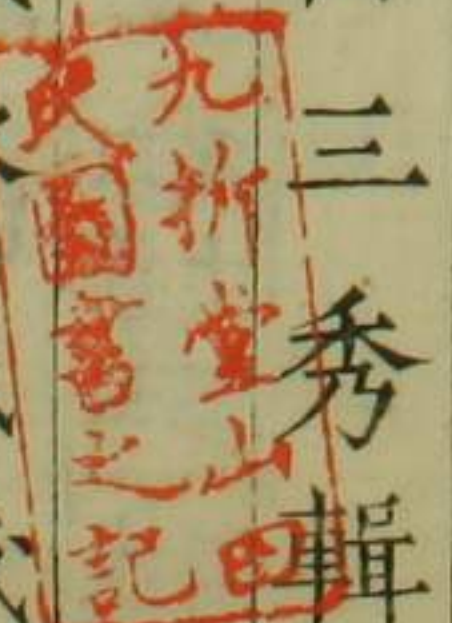 三秀輯
九折堂山田
氏圖書之記